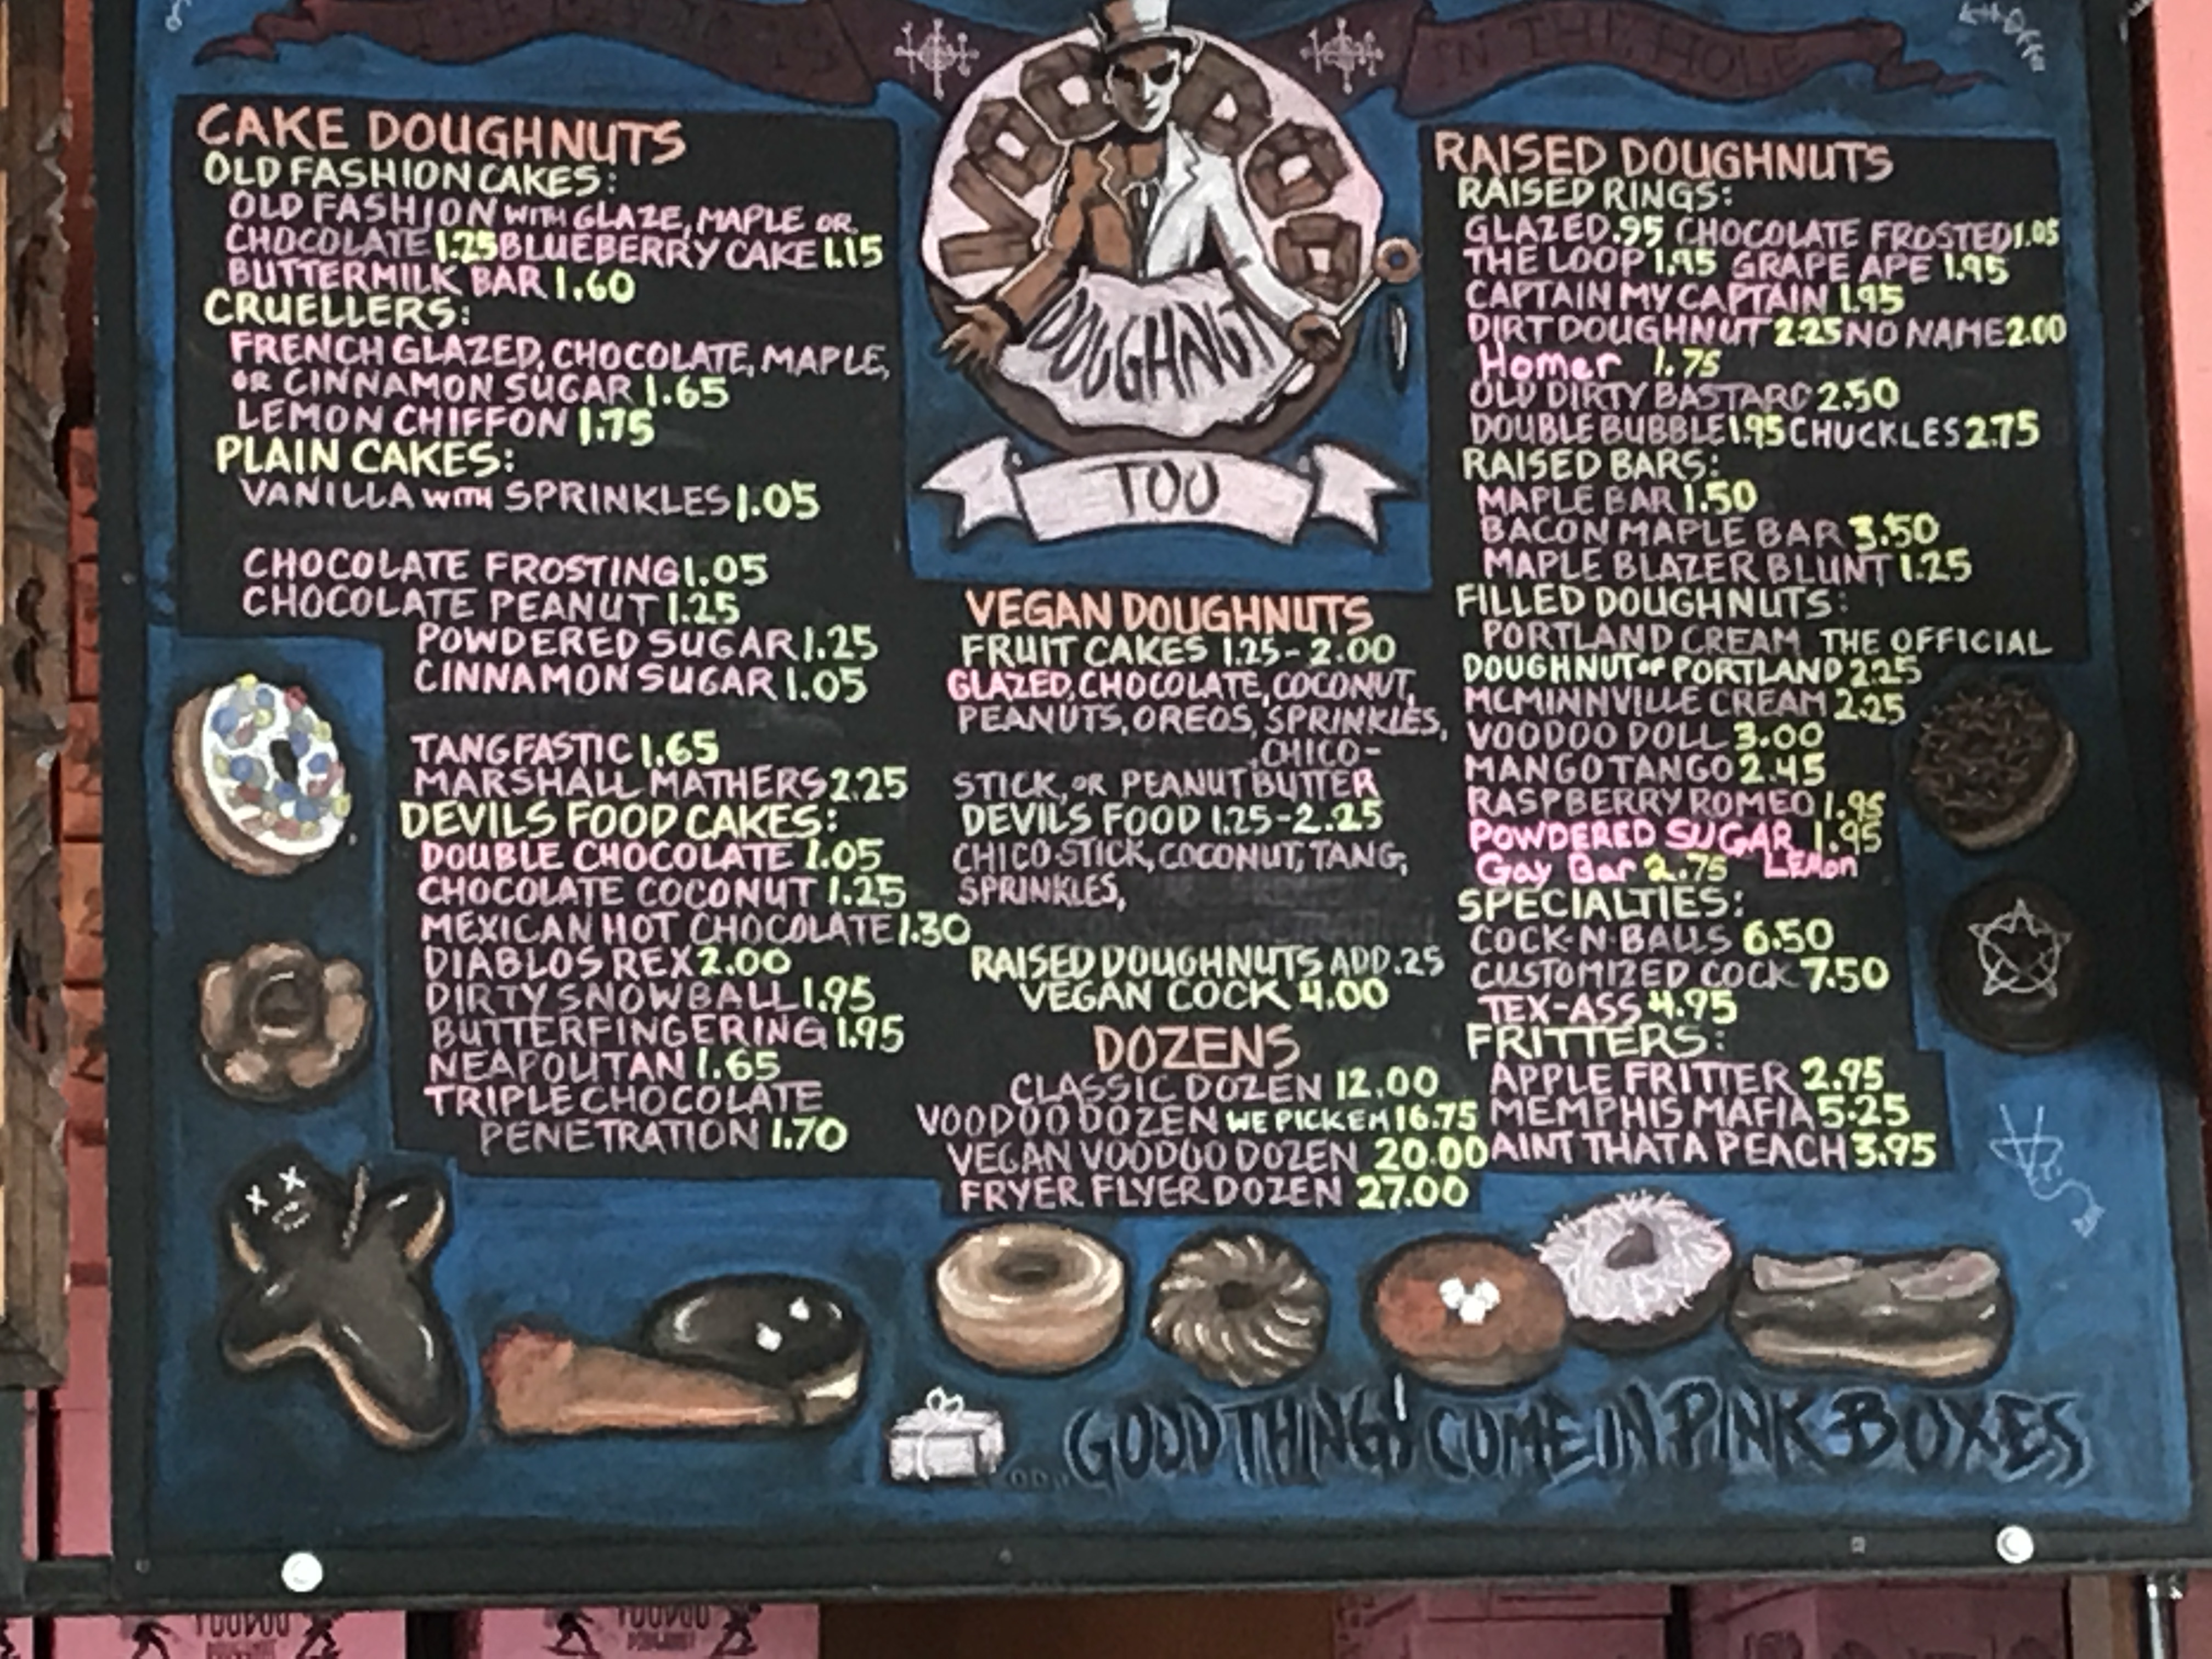 IN THE HOLE
CAKE DOUGHNUTS
OLD FASHION CAKES:
OLD FASHION WITH GLAZE, MAPLE OR
CHOCOLATE 1.25 BLUEBERRY CAKE 1.15
BUTTERMILK BAR 1.60
CRUELLERS:
FRENCH GLAZED, CHOCOLATE, MAPLE,
OR CINNAMON SUGAR 1.65
LEMON CHIFFON 1.75
PLAIN CAKES:
VANILLA WITH SPRINKLES 1.05
CHOCOLATE FROSTING 1.05
CHOCOLATE PEANUT 1.25
POWDERED SUGAR 1.25
CINNAMON SUGAR 1.05
TANGFASTIC 1.65
MARSHALL MATHERS 2.25
DEVILS FOOD CAKES:
DOUBLE CHOCOLATE 1.05
CHOCOLATE COCONUT 1.25
MEXICAN HOT CHOCOLATE 1.30
DIABLOS REX 2.00
DIRTY SNOWBALL 1.95
BUTTERFINGERING 1.95
NEAPOLITAN 1.65
TRIPLE CHOCOLATE
PENETRATION 1.70
VOODOO
DOUGHNUT
TOO
VEGAN DOUGHNUTS
FRUIT CAKES 1.25-2.00
GLAZED, CHOCOLATE, COCONUT,
PEANUTS, OREOS, SPRINKLES,
,CHICO-
STICK, OR PEANUT BUTTER
DEVILS FOOD 1.25-2.25
CHICO STICK, COCONUT, TANG,
SPRINKLES,
RAISED DOUGHNUTS ADD .25
VEGAN COCK 4.00
DOZENS
CLASSIC DOZEN 12.00
VOODOO DOZEN WE PICK EM 16.75
VEGAN VOODOO DOZEN 20.00
FRYER FLYER DOZEN 27.00
RAISED DOUGHNUTS
RAISED RINGS:
GLAZED .95 CHOCOLATE FROSTED 1.05
THE LOOP 1.95 GRAPE APE 1.95
CAPTAIN MY CAPTAIN 1.95
DIRT DOUGHNUT 2.25 NO NAME 2.00
Homer 1.75
OLD DIRTY BASTARD 2.50
DOUBLE BUBBLE 1.95 CHUCKLES 2.75
RAISED BARS:
MAPLE BAR 1.50
BACON MAPLE BAR 3.50
MAPLE BLAZER BLUNT 1.25
FILLED DOUGHNUTS:
PORTLAND CREAM THE OFFICIAL
DOUGHNUT OF PORTLAND 2.25
MCMINNVILLE CREAM 2.25
VOODOO DOLL 3.00
MANGO TANGO 2.45
RASPBERRY ROMEO 1.95
POWDERED SUGAR 1.95
Gay Bar 2.75 LEMON
SPECIALTIES:
COCK-N-BALLS 6.50
CUSTOMIZED COCK 7.50
TEX-ASS 4.95
FRITTERS:
APPLE FRITTER 2.95
MEMPHIS MAFIA 5.25
AINT THAT A PEACH 3.95
....GOOD THINGS COME IN PINK BOXES
VOODOO
DOUGHNUT
VOODOO
DOUGHNUT